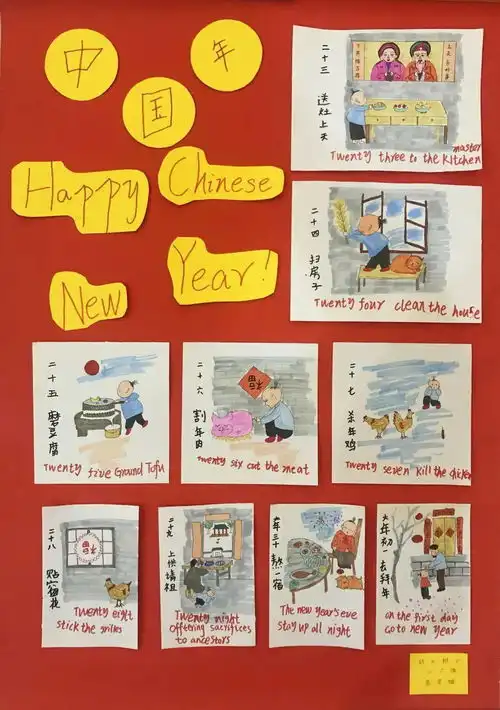 中
国
年
Happy Chinese
New Year!
二十三 送灶上天
master
Twenty three to the Kitchen
二十四 扫房子
Twenty four clean the house
二十五 磨豆腐
Twenty five Ground Tofu
二十六 割年肉
福
Twenty six cut the meat
二十七 杀年鸡
Twenty seven kill the chicken
二十八 贴窗花
Twenty eight
stick the grilles
二十九 上供请祖
Twenty night
Offtering sacrifices
to ancestors
年三十 熬一宿
The new year's eve
stay up all night
大年初一 去拜年
on the first day
Go to new Year